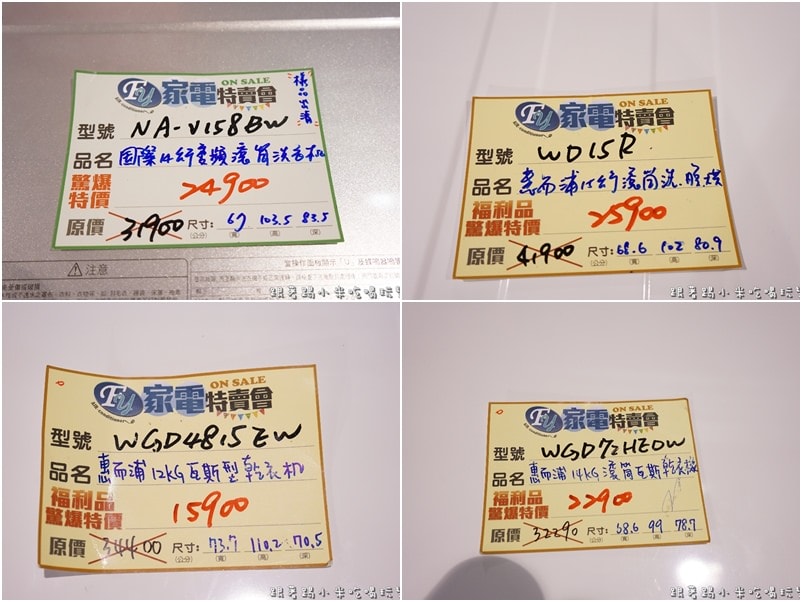 FU 家電特賣會 ON SALE
樣品出清
型號 NA-V158BW
品名 國際14公斤變頻滾筒洗衣機
驚爆特價 24900
原價 31900 尺寸: 67 103.5 83.5
(公分) (寬) (高) (深)
⚠注意
跟著踢小米吃喝玩樂
FU 家電特賣會 ON SALE
型號 WD15R
品名 惠而浦15公斤滾筒洗.脫.烘
福利品 驚爆特價 25900
原價 41900 尺寸: 68.6 102 80.9
(公分) (寬) (高) (深)
跟著踢小米吃喝玩樂
FU 家電特賣會 ON SALE
型號 WGD4815EW
品名 惠而浦12KG瓦斯型乾衣機
福利品 驚爆特價 15900
原價 34400 尺寸: 73.7 110.2 70.5
(公分) (寬) (高) (深)
跟著踢小米吃喝玩樂
FU 家電特賣會 ON SALE
型號 WGD72HEDW
品名 惠而浦14KG滾筒瓦斯乾衣機
福利品 驚爆特價 22900
原價 32290 尺寸: 68.6 99 78.7
(公分) (寬) (高) (深)
跟著踢小米吃喝玩樂